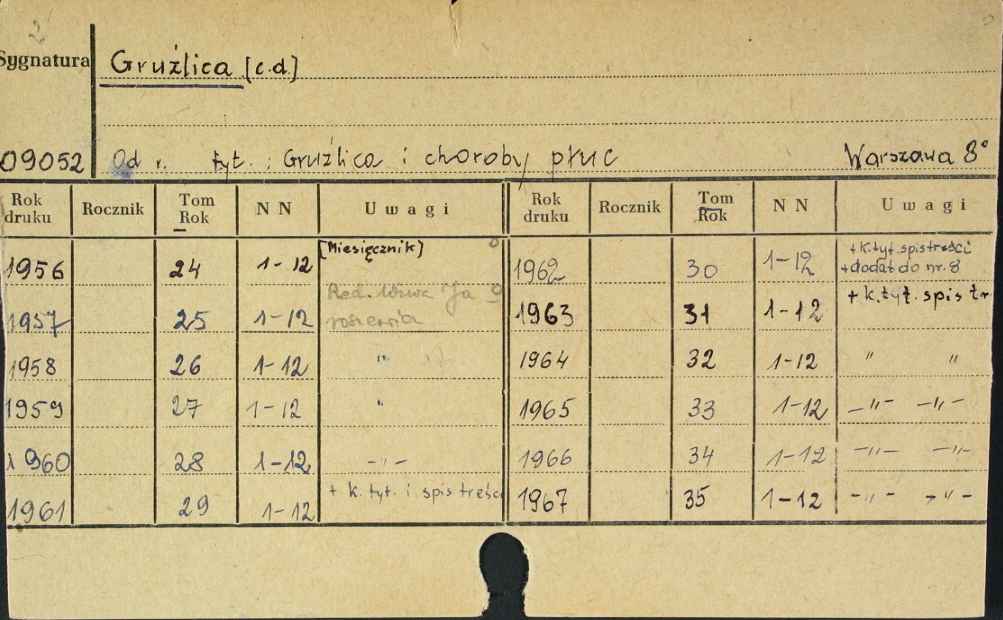 2
Sygnatura Gruźlica [c.d.]
09052 Od r. tyt. : Gruźlica i choroby płuc Warszawa 8°
Rok druku Rocznik Tom Rok NN Uwagi Rok druku Rocznik Tom Rok NN Uwagi
1956 24 1-12 [Miesięcznik] 1962 30 1-12 + k. tyt. spis treści + dodat do nr. 8
1957 25 1-12 1963 31 1-12 + k. tyt. spis tr
1958 26 1-12 " 1964 32 1-12 " "
1959 27 1-12 " 1965 33 1-12 -"- -"-
1960 28 1-12 -"- 1966 34 1-12 -"- -"-
1961 29 1-12 + k. tyt. i spis treści 1967 35 1-12 -"- -"-